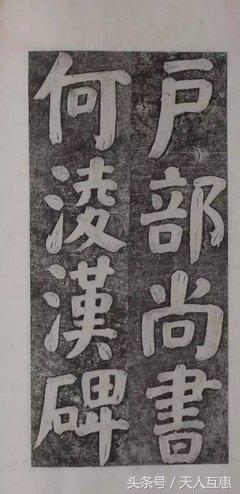 户部尚書
何淩漢碑
头条号／天人互惠